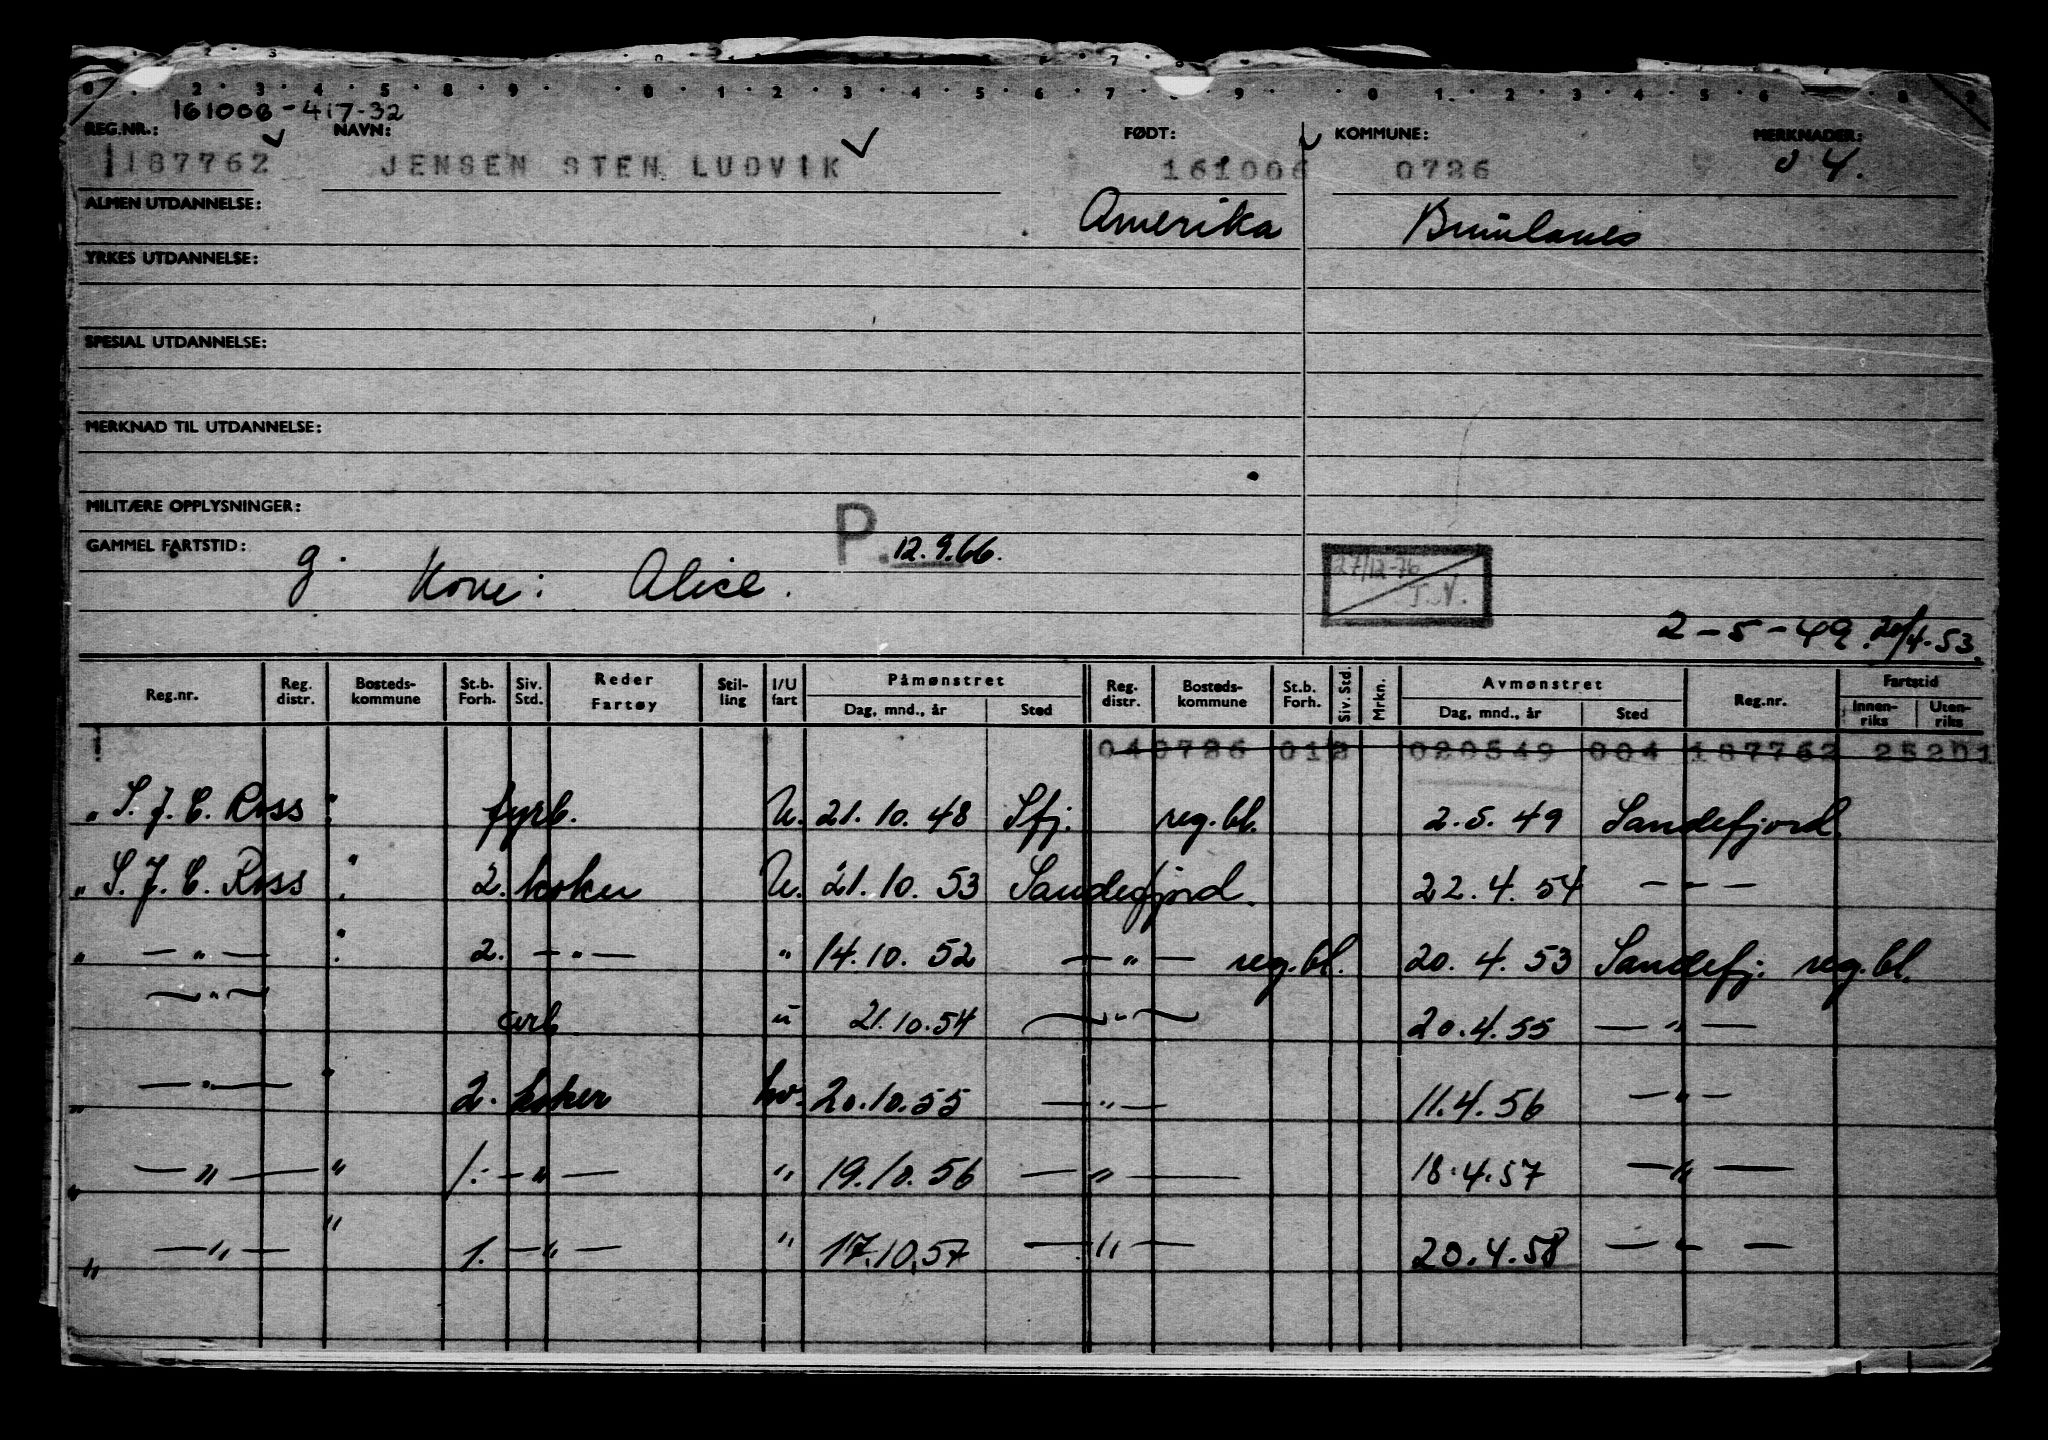 161006-417-32
REG.NR.: NAVN: FØDT: KOMMUNE: MERKNADER:
187762 JENSEN STEN LUDVIK 161006 0726 04.
ALMEN UTDANNELSE: Amerika Brunlanes
YRKES UTDANNELSE:
SPESIAL UTDANNELSE:
MERKNAD TIL UTDANNELSE:
MILITÆRE OPPLYSNINGER:
GAMMEL FARTSTID: g. Kone: Alice. P. 12.9.66. 27/12-76
2-5-49. 20/4-53.
Reg.nr. Reg. distr. Bosteds-kommune St.b. Forh. Siv. Std. Reder Fartøy Stil-ling I/U fart Påmønstret Dag, mnd., år Sted Reg. distr. Bosteds-kommune St.b. Forh. Siv. Std. Mrkn. Avmønstret Dag, mnd., år Sted Reg.nr. Fartstid Innen-riks Uten-riks
040726 012 020549 004 187762 25201
" S. J. C. Ross " fyrb. U. 21.10.48 Sfj. reg.bl. 2.5.49 Sandefjord.
" S. J. C. Ross " 2. koker U. 21.10.53 Sandefjord. 22.4.54 — " —
" — " — " 2. — " — " 14.10.52 — " — reg.bl. 20.4.53 Sandefj. reg.bl.
— " — arb u 21.10.54 — " — 20.4.55 — " —
" — " — " 2. koker hv. 20.10.55 — " — 11.4.56 — " —
" — " — " 1. — " — " 19.10.56 — " — 18.4.57 — " —
" — " — " 1. — " — " 17.10.57 — " — 20.4.58 — " —